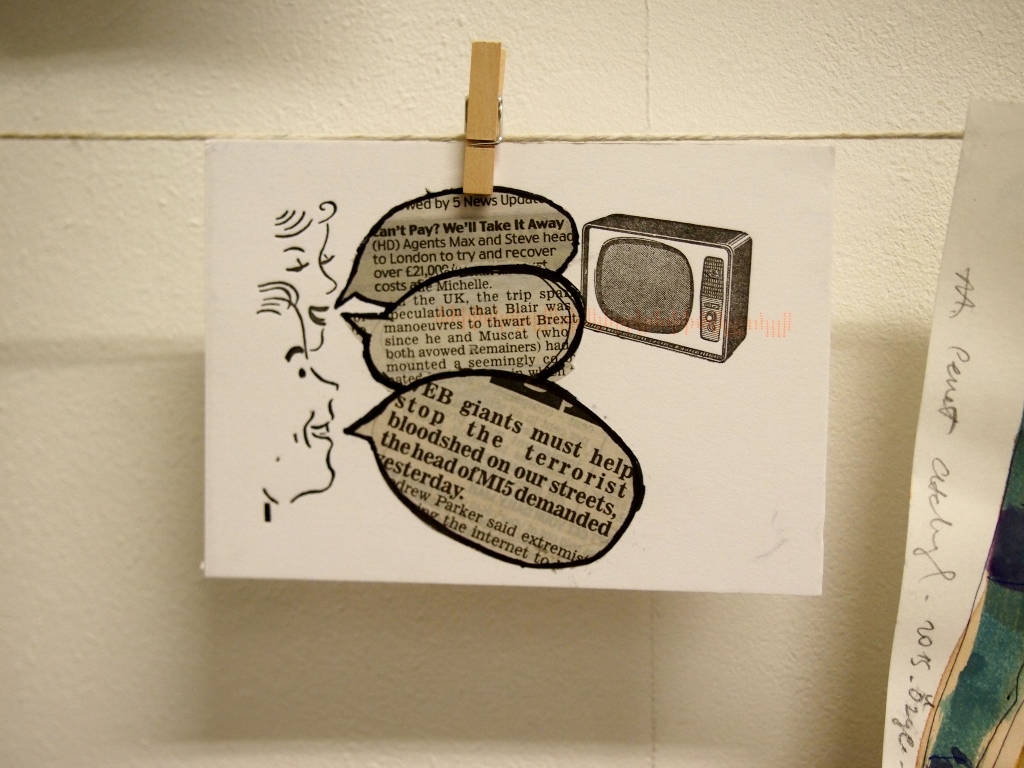 wed by 5 News Update
Can't Pay? We'll Take It Away
(HD) Agents Max and Steve head
to London to try and recover
over £21,000
costs Michelle.
the UK, the trip
speculation that Blair was
manoeuvres to thwart Brexit
since he and Muscat (who
both avowed Remainers) had
mounted a seemingly
in which
EB giants must help
stop the terrorist
bloodshed on our streets,
the head of MI5 demanded
yesterday.
drew Parker said extremist
ing the internet to